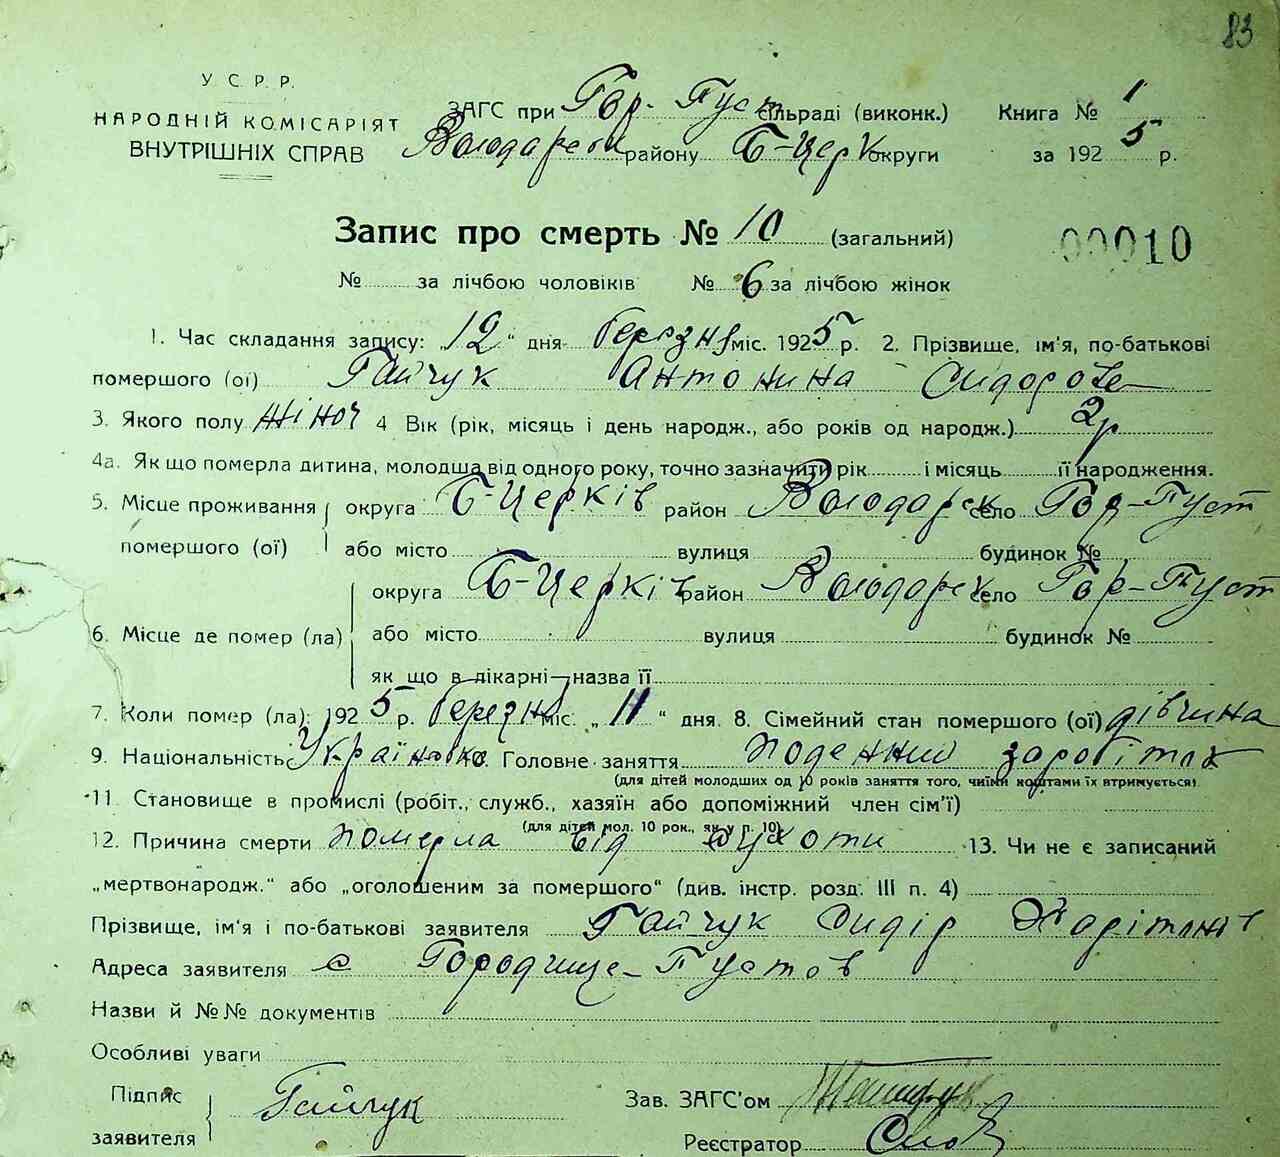 83
У. С. Р. Р.
НАРОДНІЙ КОМІСАРІЯТ
ВНУТРІШНІХ СПРАВ
ЗАГС при Гор-Пуст сільраді (виконк.) Книга № 1
Володарськ району Б-Церк округи за 1925 р.
Запис про смерть № 10 (загальний) 00010
№ за лічбою чоловіків № 6 за лічбою жінок
1. Час складання запису: „12“ дня березня міс. 1925 р. 2. Прізвище, ім'я, по-батькові
помершого (ої) Гайчук Антонина Сидоров
3. Якого полу жіноч 4 Вік (рік, місяць і день народж., або років од народж.) 2 р
4а. Як що померла дитина, молодша від одного року, точно зазначити рік і місяць її народження.
5. Місце проживання помершого (ої) округа Б-Церків район Володарськ село Гор-Пуст
або місто вулиця будинок №
6. Місце де помер (ла) округа Б-Церків район Володарськ село Гор-Пуст
або місто вулиця будинок №
як що в лікарні—назва її
7. Коли помер (ла): 1925 р. березня міс. „11“ дня. 8. Сімейний стан помершого (ої) дівчина
9. Національність Українка 10. Головне заняття поденний заробіток
(для дітей молодших од 10 років заняття того, чиїми коштами їх втримується)
11. Становище в промислі (робіт., служб., хазяїн або допоміжний член сім'ї)
(для дітей мол. 10 рок., як у п. 10)
12. Причина смерти померла від сухоти 13. Чи не є записаний
„мертвонародж.“ або „оголошеним за помершого“ (див. інстр. розд. III п. 4)
Прізвище, ім'я і по-батькові заявителя Гайчук Сидір Харітонів
Адреса заявителя с Городище-Пустов
Назви й №№ документів
Особливі уваги
Підпис заявителя Гайчук Зав. ЗАГС'ом
Реєстратор